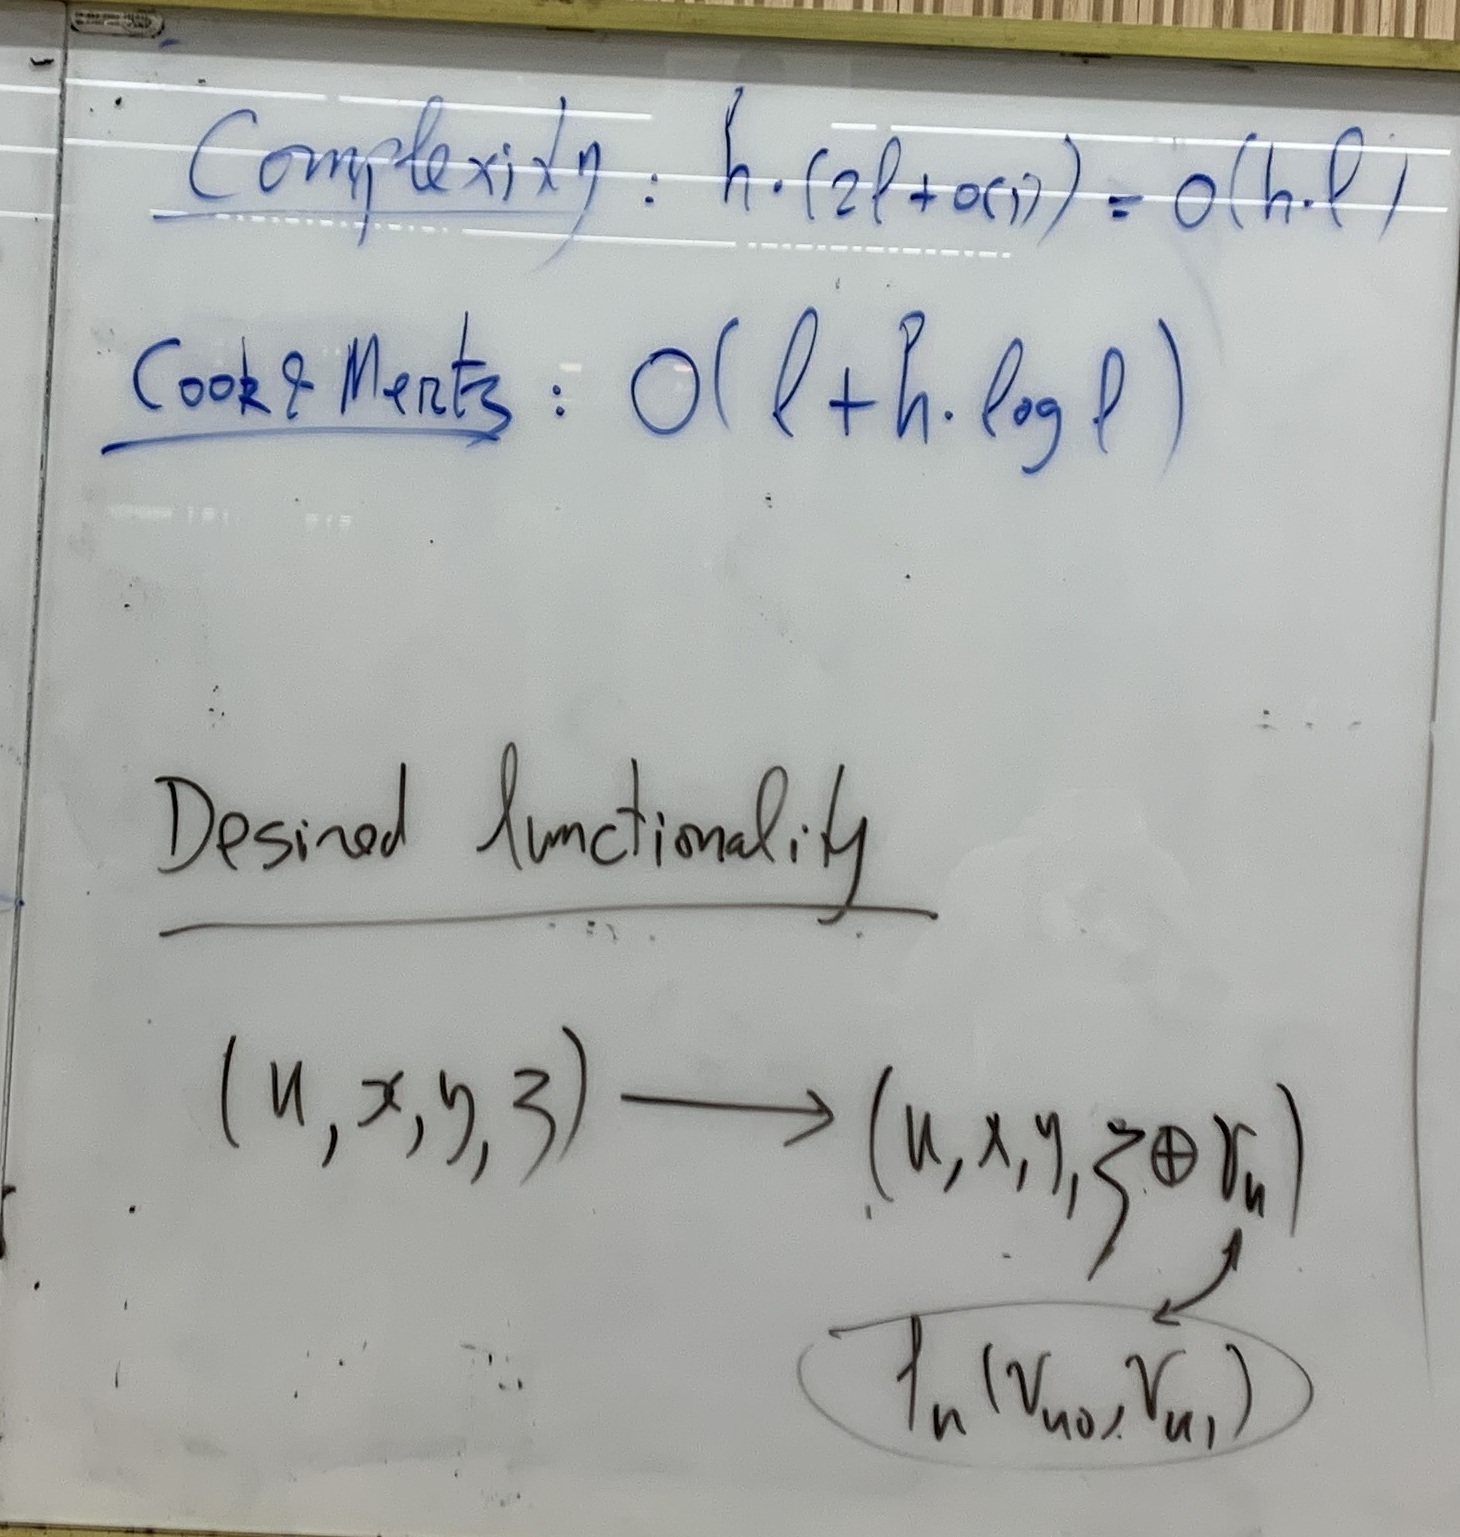 Complexity : h·(2l+O(1)) = O(h·l)
Cook & Mertz : O(l+h·log l)
Desired functionality
(u,x,y,z) → (u,x,y,z⊕v_u)
f_u(v_{u0},v_{u1})